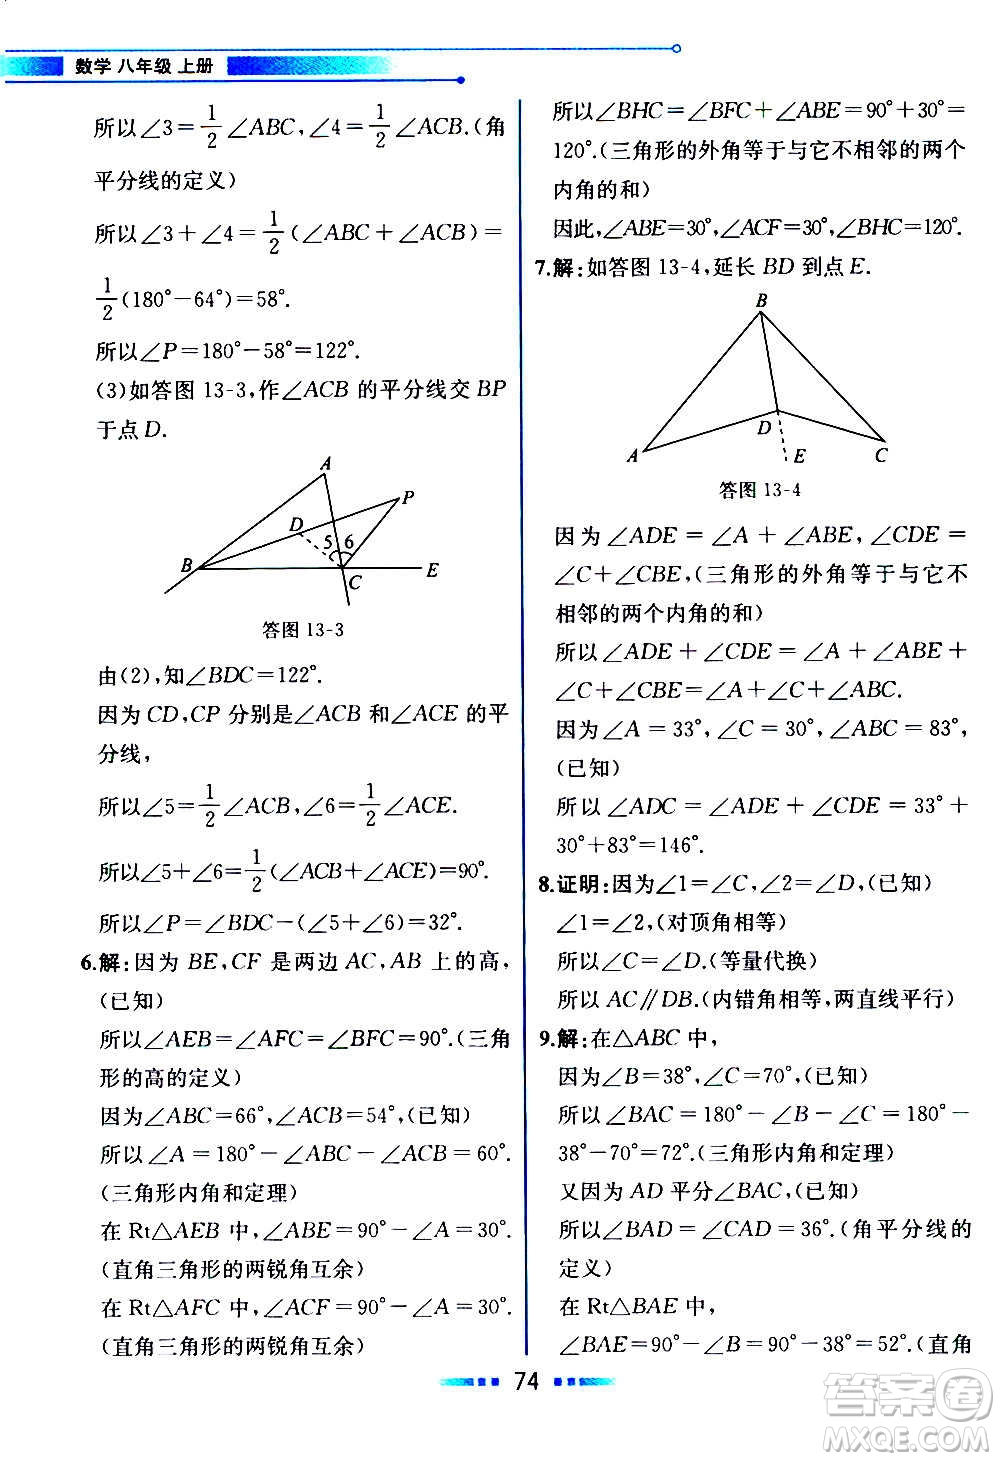 数学 八年级 上册
所以∠3=1/2∠ABC,∠4=1/2∠ACB.(角
平分线的定义)
所以∠3+∠4=1/2(∠ABC+∠ACB)=
1/2(180°-64°)=58°.
所以∠P=180°-58°=122°.
(3)如答图 13-3,作∠ACB 的平分线交 BP
于点 D.
A
P
D
5 6
B
C
E
答图 13-3
由(2),知∠BDC=122°.
因为 CD,CP 分别是∠ACB 和∠ACE 的平
分线,
所以∠5=1/2∠ACB,∠6=1/2∠ACE.
所以∠5+∠6=1/2(∠ACB+∠ACE)=90°.
所以∠P=∠BDC-(∠5+∠6)=32°.
6.解:因为 BE,CF 是两边 AC,AB 上的高,
(已知)
所以∠AEB=∠AFC=∠BFC=90°.(三角
形的高的定义)
因为∠ABC=66°,∠ACB=54°,(已知)
所以∠A=180°-∠ABC-∠ACB=60°.
(三角形内角和定理)
在 Rt△AEB 中,∠ABE=90°-∠A=30°.
(直角三角形的两锐角互余)
在 Rt△AFC 中,∠ACF=90°-∠A=30°.
(直角三角形的两锐角互余)
所以∠BHC=∠BFC+∠ABE=90°+30°=
120°.(三角形的外角等于与它不相邻的两个
内角的和)
因此,∠ABE=30°,∠ACF=30°,∠BHC=120°.
7.解:如答图 13-4,延长 BD 到点 E.
B
D
A
E
C
答图 13-4
因为∠ADE=∠A+∠ABE,∠CDE=
∠C+∠CBE,(三角形的外角等于与它不
相邻的两个内角的和)
所以∠ADE+∠CDE=∠A+∠ABE+
∠C+∠CBE=∠A+∠C+∠ABC.
因为∠A=33°,∠C=30°,∠ABC=83°,
(已知)
所以∠ADC=∠ADE+∠CDE=33°+
30°+83°=146°.
8.证明:因为∠1=∠C,∠2=∠D,(已知)
∠1=∠2,(对顶角相等)
所以∠C=∠D.(等量代换)
所以 AC∥DB.(内错角相等,两直线平行)
9.解:在△ABC 中,
因为∠B=38°,∠C=70°,(已知)
所以∠BAC=180°-∠B-∠C=180°-
38°-70°=72°.(三角形内角和定理)
又因为 AD 平分∠BAC,(已知)
所以∠BAD=∠CAD=36°.(角平分线的
定义)
在 Rt△BAE 中,
∠BAE=90°-∠B=90°-38°=52°.(直角
74
答案卷
MXQE.COM